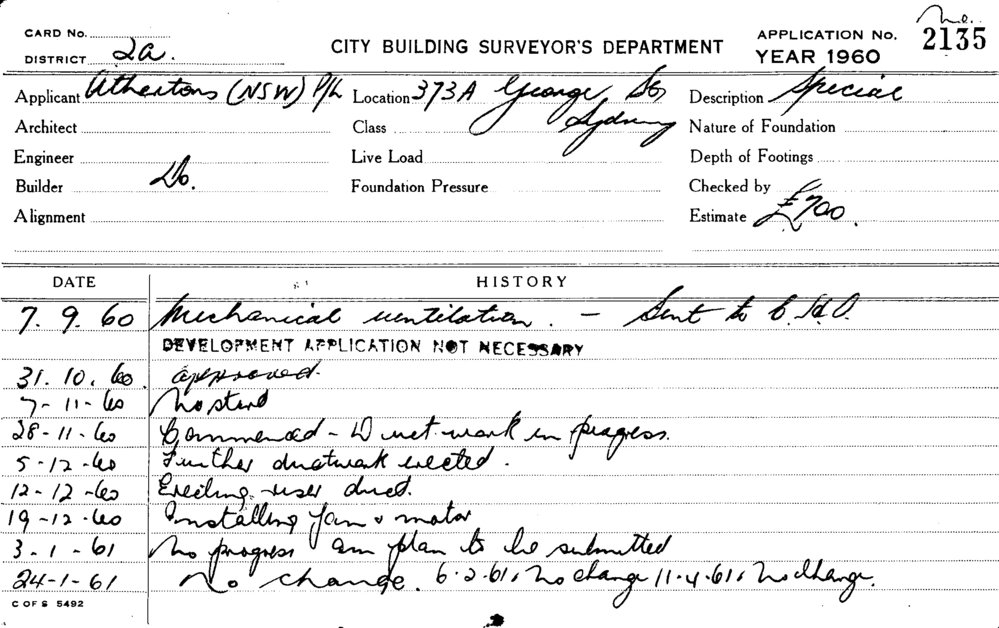 CARD No.
DISTRICT 2a.
CITY BUILDING SURVEYOR'S DEPARTMENT
APPLICATION No. 2135
YEAR 1960
Applicant Athertons (NSW) P/L Location 373A George St, Description Special
Architect Class Sydney Nature of Foundation
Engineer Live Load Depth of Footings
Builder Do. Foundation Pressure Checked by
Alignment Estimate £700.
DATE HISTORY
7. 9. 60 Mechanical ventilation. - Sent to C.H.O.
DEVELOPMENT APPLICATION NOT NECESSARY
31. 10. 60. approved.
7-11-60 No start
28-11-60 Commenced - Duct work in progress.
5-12-60 Further ductwork erected.
12-12-60 Erecting riser duct.
19-12-60 Installing fan & motor
3-1-61 No progress am plan to be submitted
24-1-61 No change. 6.2.61. No change 11.4.61. No change.
C OF S 5492